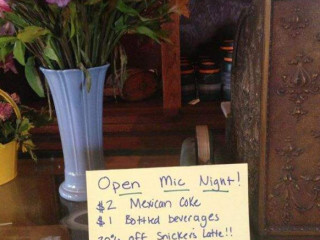 Open Mic Night!
$2 Mexican Coke
$1 Bottled beverages
20% off Snickers Latte!!